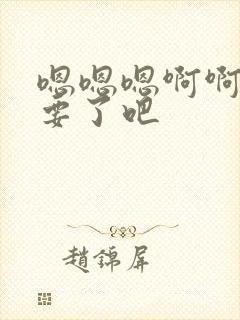 嗯嗯嗯啊啊
要了吧
趙錦屏